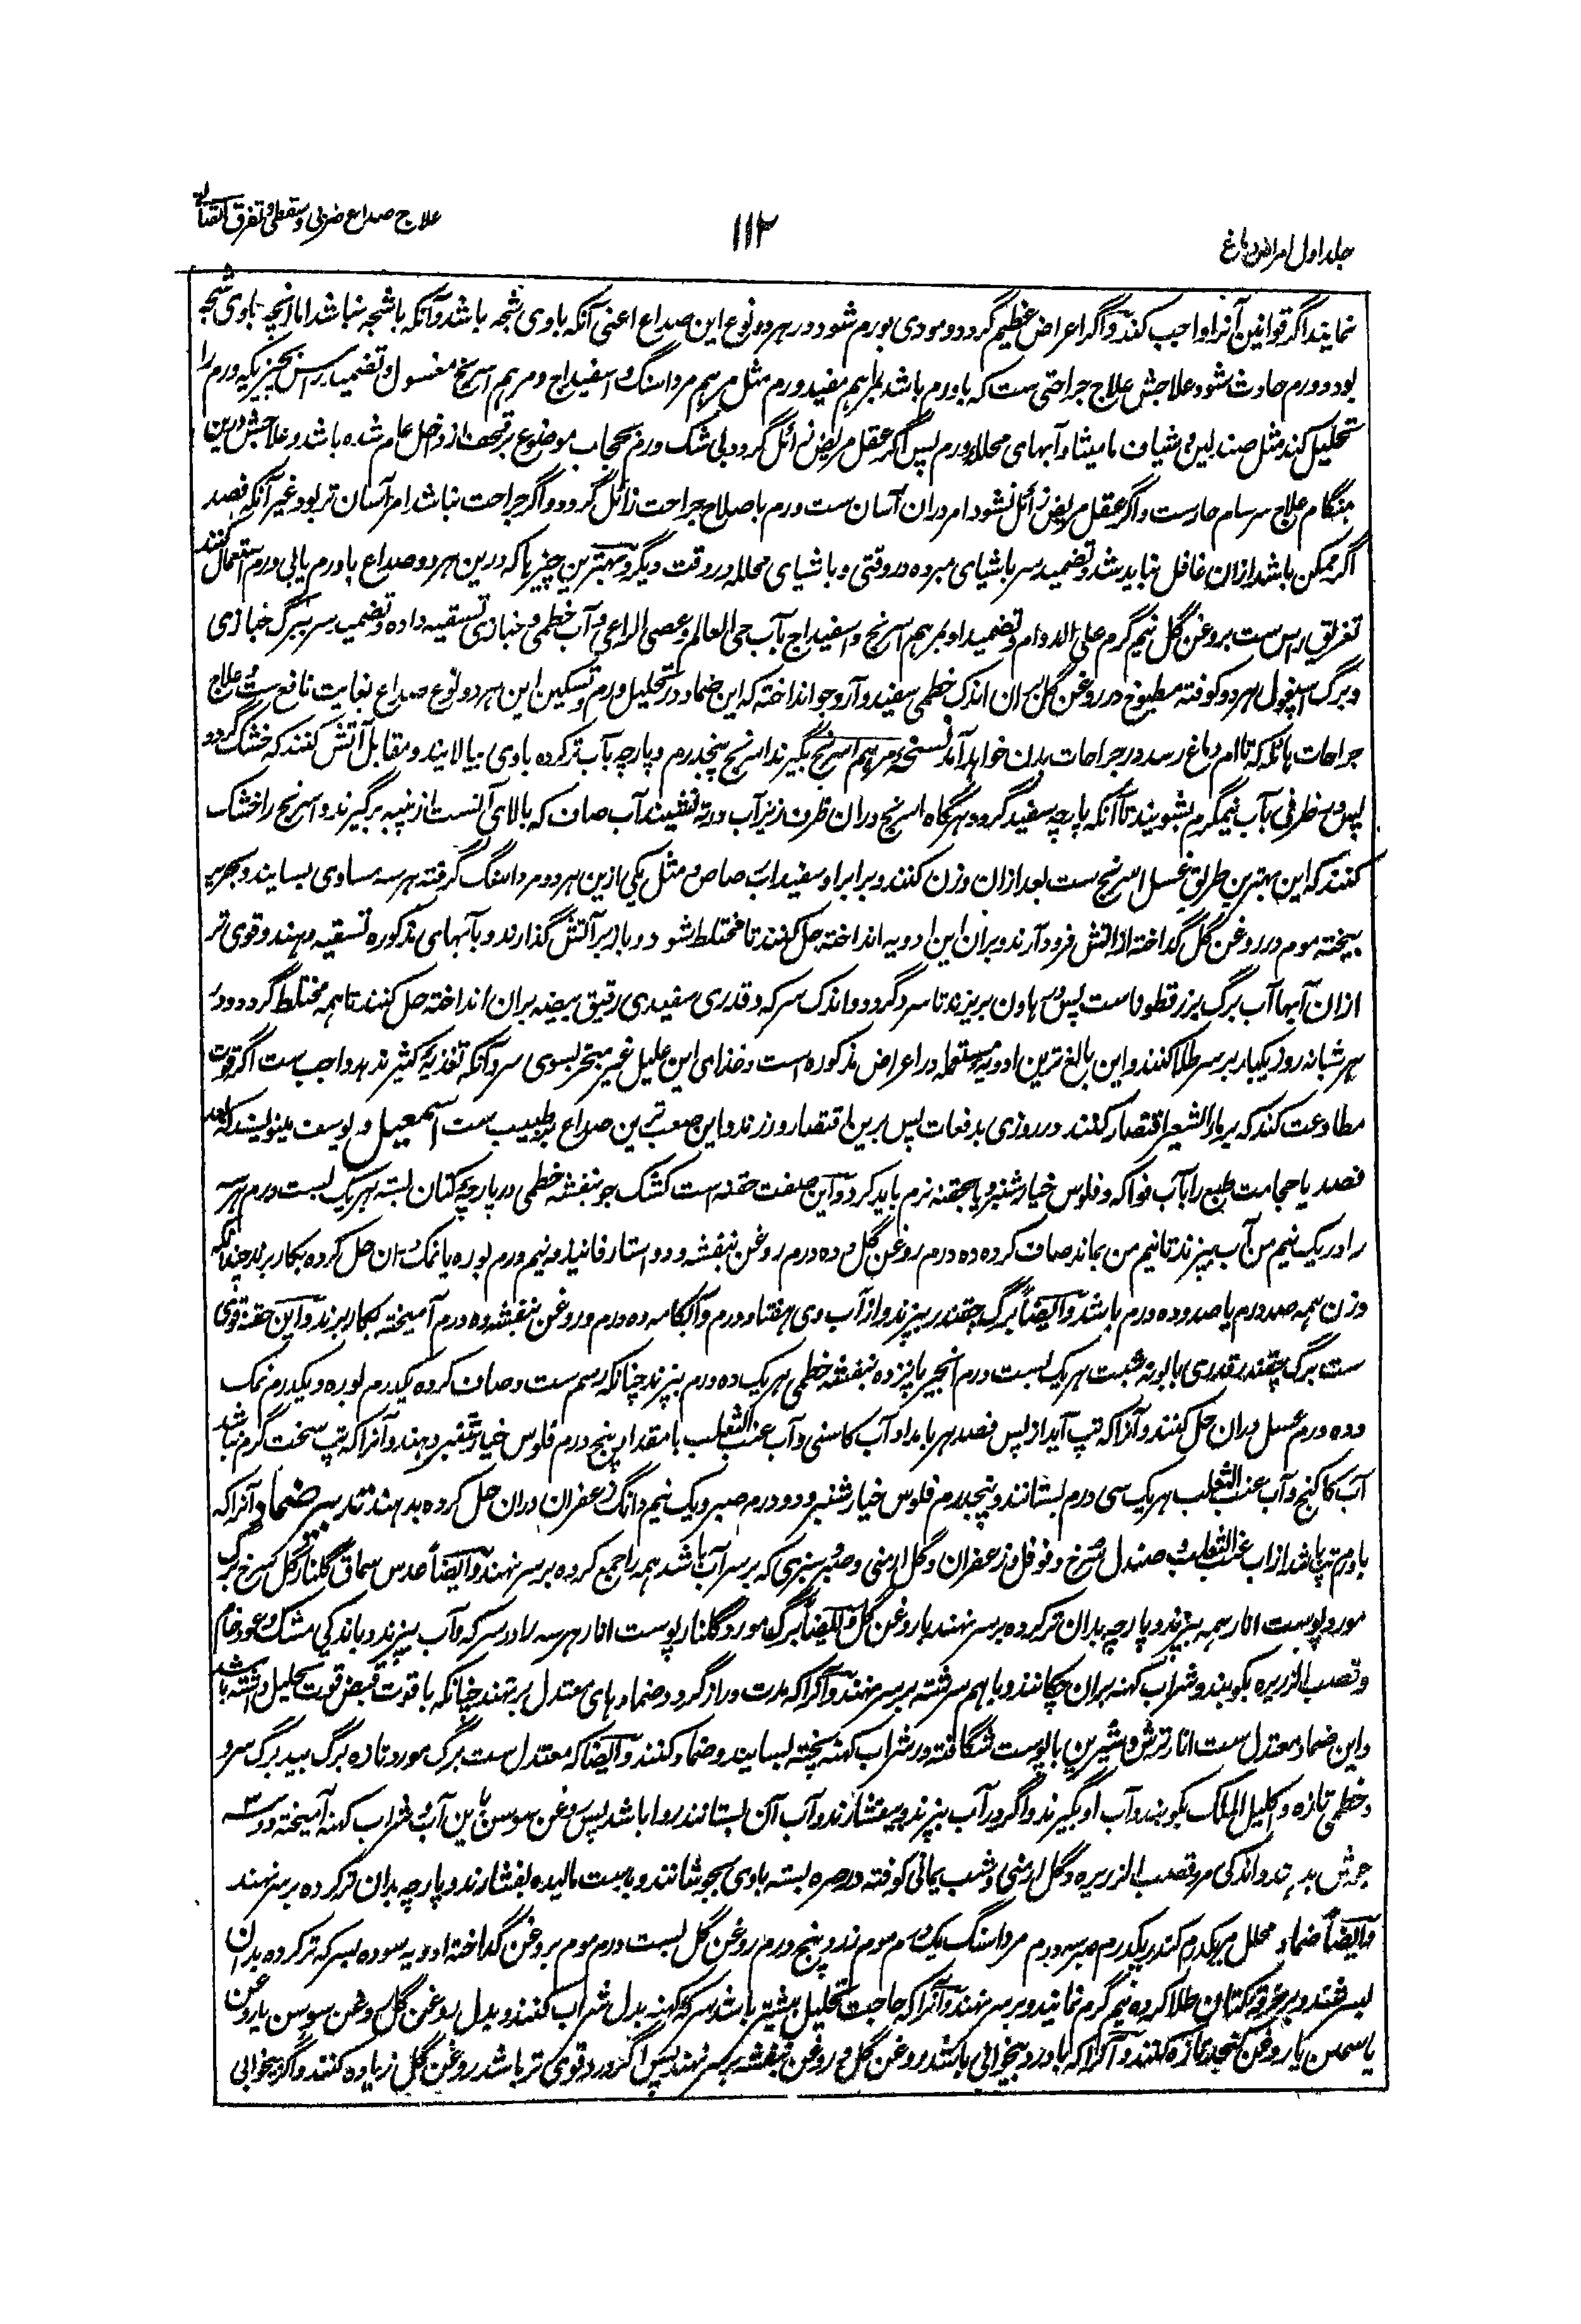 جلد اول امراض دماغ
۱۱۲
علاج صداع ضربی و سقطی و تفرق اتصال
نمایند اگر قوانین آنرا واجب کند و اگر اعراض عظیم گردد و مودی بورم شود در هر دو نوع این صداع اعنی آنکه باوی شجه باشد و آنکه با شجه نباشد اما آنچه باوی شجه
بود و ورم حادث شود علاجش علاج جراحتی ست که باورم باشد بمراهم مفید ورم مثل مرهم مرداسنگ و اسفیداج و مرهم اسرنج مغسول و تضمید راس بچیزیکه ورم را
تحلیل کند مثل صندلین و شیاف مامیثا و آبهای محلله ورم پس اگر عقل مریض زائل گردد بی شک ورم بحجاب موضوع بر قحف از داخل عام شده باشد و علاجش درین
هنگام علاج سرسام حارست و اگر عقل مریض زائل نشود امر دران آسان ست ورم باصلاح جراحت زائل گردد و اگر جراحت نباشد امر آسان تر بود غیر آنکه فصد
اگر ممکن باشد ازان غافل نباید شد و تضمید سر باشیای مبرده در وقتی و باشیای محلله در وقت دیگر و بهترین چیزها که درین هر دو صداع باورم یا بی ورم استعمال کنند
تغریق راس ست بروغن گل نیم گرم علی الدوام و تضمید او بمرهم اسرنج و اسفیداج بآب حی العالم و عصی الراعی و آب خطمی و خبازی تسقیه داده و تضمید سر ببرگ خبازی
و برگ اسپغول هر دو کوفته مطبوخ در روغن گل بران اندک خطمی سفید و آرد جو انداخته که این ضماد در تحلیل ورم و تسکین این هر دو نوع صداع بغایت نافع ست و علاج
جراحات هائله که تا ام دماغ رسد در جراحات بدن خواهد آمد نسخه مرهم اسرنج بگیرند اسرنج پنجدرم و پارچه بآب تر کرده باوی بیالایند و مقابل آتش کنند که خشک گردد
پس در ظرفی بآب نیمگرم بشویند تا آنکه پارچه سفید گردد و هرگاه اسرنج دران ظرف زیر آب در ته نشیند آب صاف که بالای آنست از پنبه برگیرند و اسرنج را خشک
کنند که این بهترین طریق غسل اسرنج ست بعد ازان وزن کنند و برابر او سفیداب رصاص و مثل یکی ازین هر دو مرداسنگ گرفته هر سه مساوی بسایند و بحریر
بیخته موم در روغن گل گداخته از آتش فرود آرند و بران این ادویه انداخته حل کنند تا مختلط شود و باز بر آتش گذارند و بآبهای مذکوره تسقیه دهند و قوی تر
ازان آبها آب برگ بزرقطوناست پس در هاون بریزند تا سرد گردد و اندک سرکه و قدری سفیدی رقیق بیضه بران انداخته حل کنند تا همه مختلط گردد و در
هر شبانه روز یکبار بر سر طلا کنند و این بالغ ترین ادویه مستعمله در اعراض مذکوره است و غذای این علیل غیر مبخر بسوی سر و آنکه تغذیه کثیر ندهد واجب ست اگر قوت
مطاوعت کند که بر ماء الشعیر اقتصار کنند در روزی بدفعات پس برین اقتصار ورزند و این صعب ترین صداع بر طبیب ست اسمعیل و یوسف مینویسند که بعد
فصد یا حجامت طبع را بآب فواکه و فلوس خیارشنبر و یا بحقنه نرم باید کرد و این صفت حقنه است کشک جو بنفشه خطمی در پارچه کتان بسته هر یک بست درم هر سه
را در یک نیم من آب بپزند تا نیم من بماند صاف کرده ده درم روغن گل و ده درم روغن بنفشه و دو استار فانیذ و نیم درم بوره یا نمک دران حل کرده بکار برند چندانکه
وزن همه صد درم یا صد و ده درم باشد و ایضاً برگ چقندر بپزند و از آب وی هفتاد درم و آبکامه ده درم و روغن بنفشه ده درم آمیخته بکار برند و این حقنه قوی
ست برگ چقندر قدری بابونه شبت هر یک بست درم انجیر پانزده بنفشه خطمی هر یک ده درم بپزند چنانکه رسم ست و صاف کرده یکدرم بوره و یکدرم نمک
و ده درم عسل دران حل کنند و آنرا که تپ آید از پس فصد هر بامداد آب کاسنی و آب عنب الثعلب با مقدار پنج درم فلوس خیارشنبر دهند و آنرا که تپ سخت گرم نباشد
آب کاکنج و آب عنب الثعلب هر یک سی درم بستانند و پنجدرم فلوس خیارشنبر و دو درم صبر و یک نیم دانگ زعفران دران حل کرده بدهند تدبیر ضماد آنرا که
باورم تپ باشد از آب عنب الثعلب و صندل سرخ و فوفل و زعفران و گل ارمنی و صبر و سبزی که بر سر آب باشد همه را جمع کرده بر سر نهند و ایضاً عدس سماق گلنار گل سرخ برگ
مورد پوست انار همه بپزند و پارچه بدان تر کرده بر سر نهند با روغن گل و ایضاً برگ مورد گلنار پوست انار هر سه را در سرکه و آب بپزند و باندکی مشک و عود خام
و قصب الذریره بکوبند و شراب کهنه بران چکانند و باهم سرشته بر سر نهند و آنرا که مدت دراز گردد ضمادهای معتدل برنهند چنانکه با قوت قبض قوت تحلیل داشته باشد
و این ضماد معتدل ست انار ترش و شیرین با پوست شگافته در شراب کهنه پخته بسایند و ضماد کنند و ایضاً که معتدل ست برگ مورد تازه برگ بید برگ سرو
و خطمی تازه و اکلیل الملک بکوبند و آب او بگیرند و اگر در آب بپزند و بیفشارند و آب آن بستانند روا باشد پس روغن سوسن باین آب و شراب کهنه آمیخته دو سه
جوش بدهند و اندکی مر و قصب الذریره و گل ارمنی و شب یمانی کوفته در صره بسته باوی بجوشانند و بدست مالیده بفشارند و پارچه بدان تر کرده بر سر نهند
و ایضاً ضماد محلل مر یکدرم کندر یکدرم صبر سه درم مرداسنگ یکدرم موم زرد پنج درم روغن گل بست درم موم بروغن گداخته ادویه سوده بسرکه تر کرده بدان
بسرشند و بر خرقه کتان طلا کرده نیم گرم نمایند و بر سر نهند و آنرا که حاجت تحلیل بیشتر باشد سرکه کهنه بدل شراب کنند و بدل روغن گل روغن سوسن یا روغن
یاسمین یا روغن کنجد تازه کنند و آنرا که با درد بیخوابی باشد روغن گل و روغن بنفشه بر سر نهند پس اگر درد قوی تر باشد روغن گل زیاده کنند و اگر بیخوابی